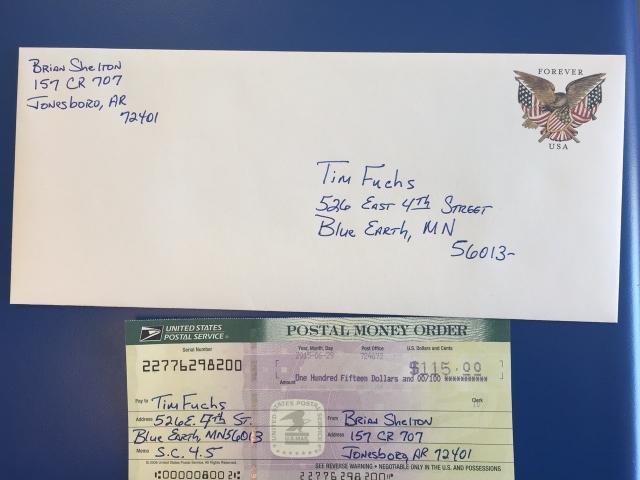 Brian Shelton
157 CR 707
Jonesboro, AR
72401
FOREVER
USA
Tim Fuchs
526 East 4th Street
Blue Earth, MN
56013-
UNITED STATES POSTAL SERVICE®
POSTAL MONEY ORDER
Serial Number
Year, Month, Day
Post Office
U.S. Dollars and Cents
22776298200
2015-06-29
724672
$115.00
Amount
One Hundred Fifteen Dollars and 00/100 **********
Pay to Tim Fuchs
Clerk
Address 526 E. 4th St.
Blue Earth, MN 56013
Memo S.C. 4.5
UNITED STATES POSTAL SERVICE
U.S. MAIL
From Brian Shelton
Address 157 CR 707
Jonesboro, AR 72401
SEE REVERSE WARNING • NEGOTIABLE ONLY IN THE U.S. AND POSSESSIONS
22776298200